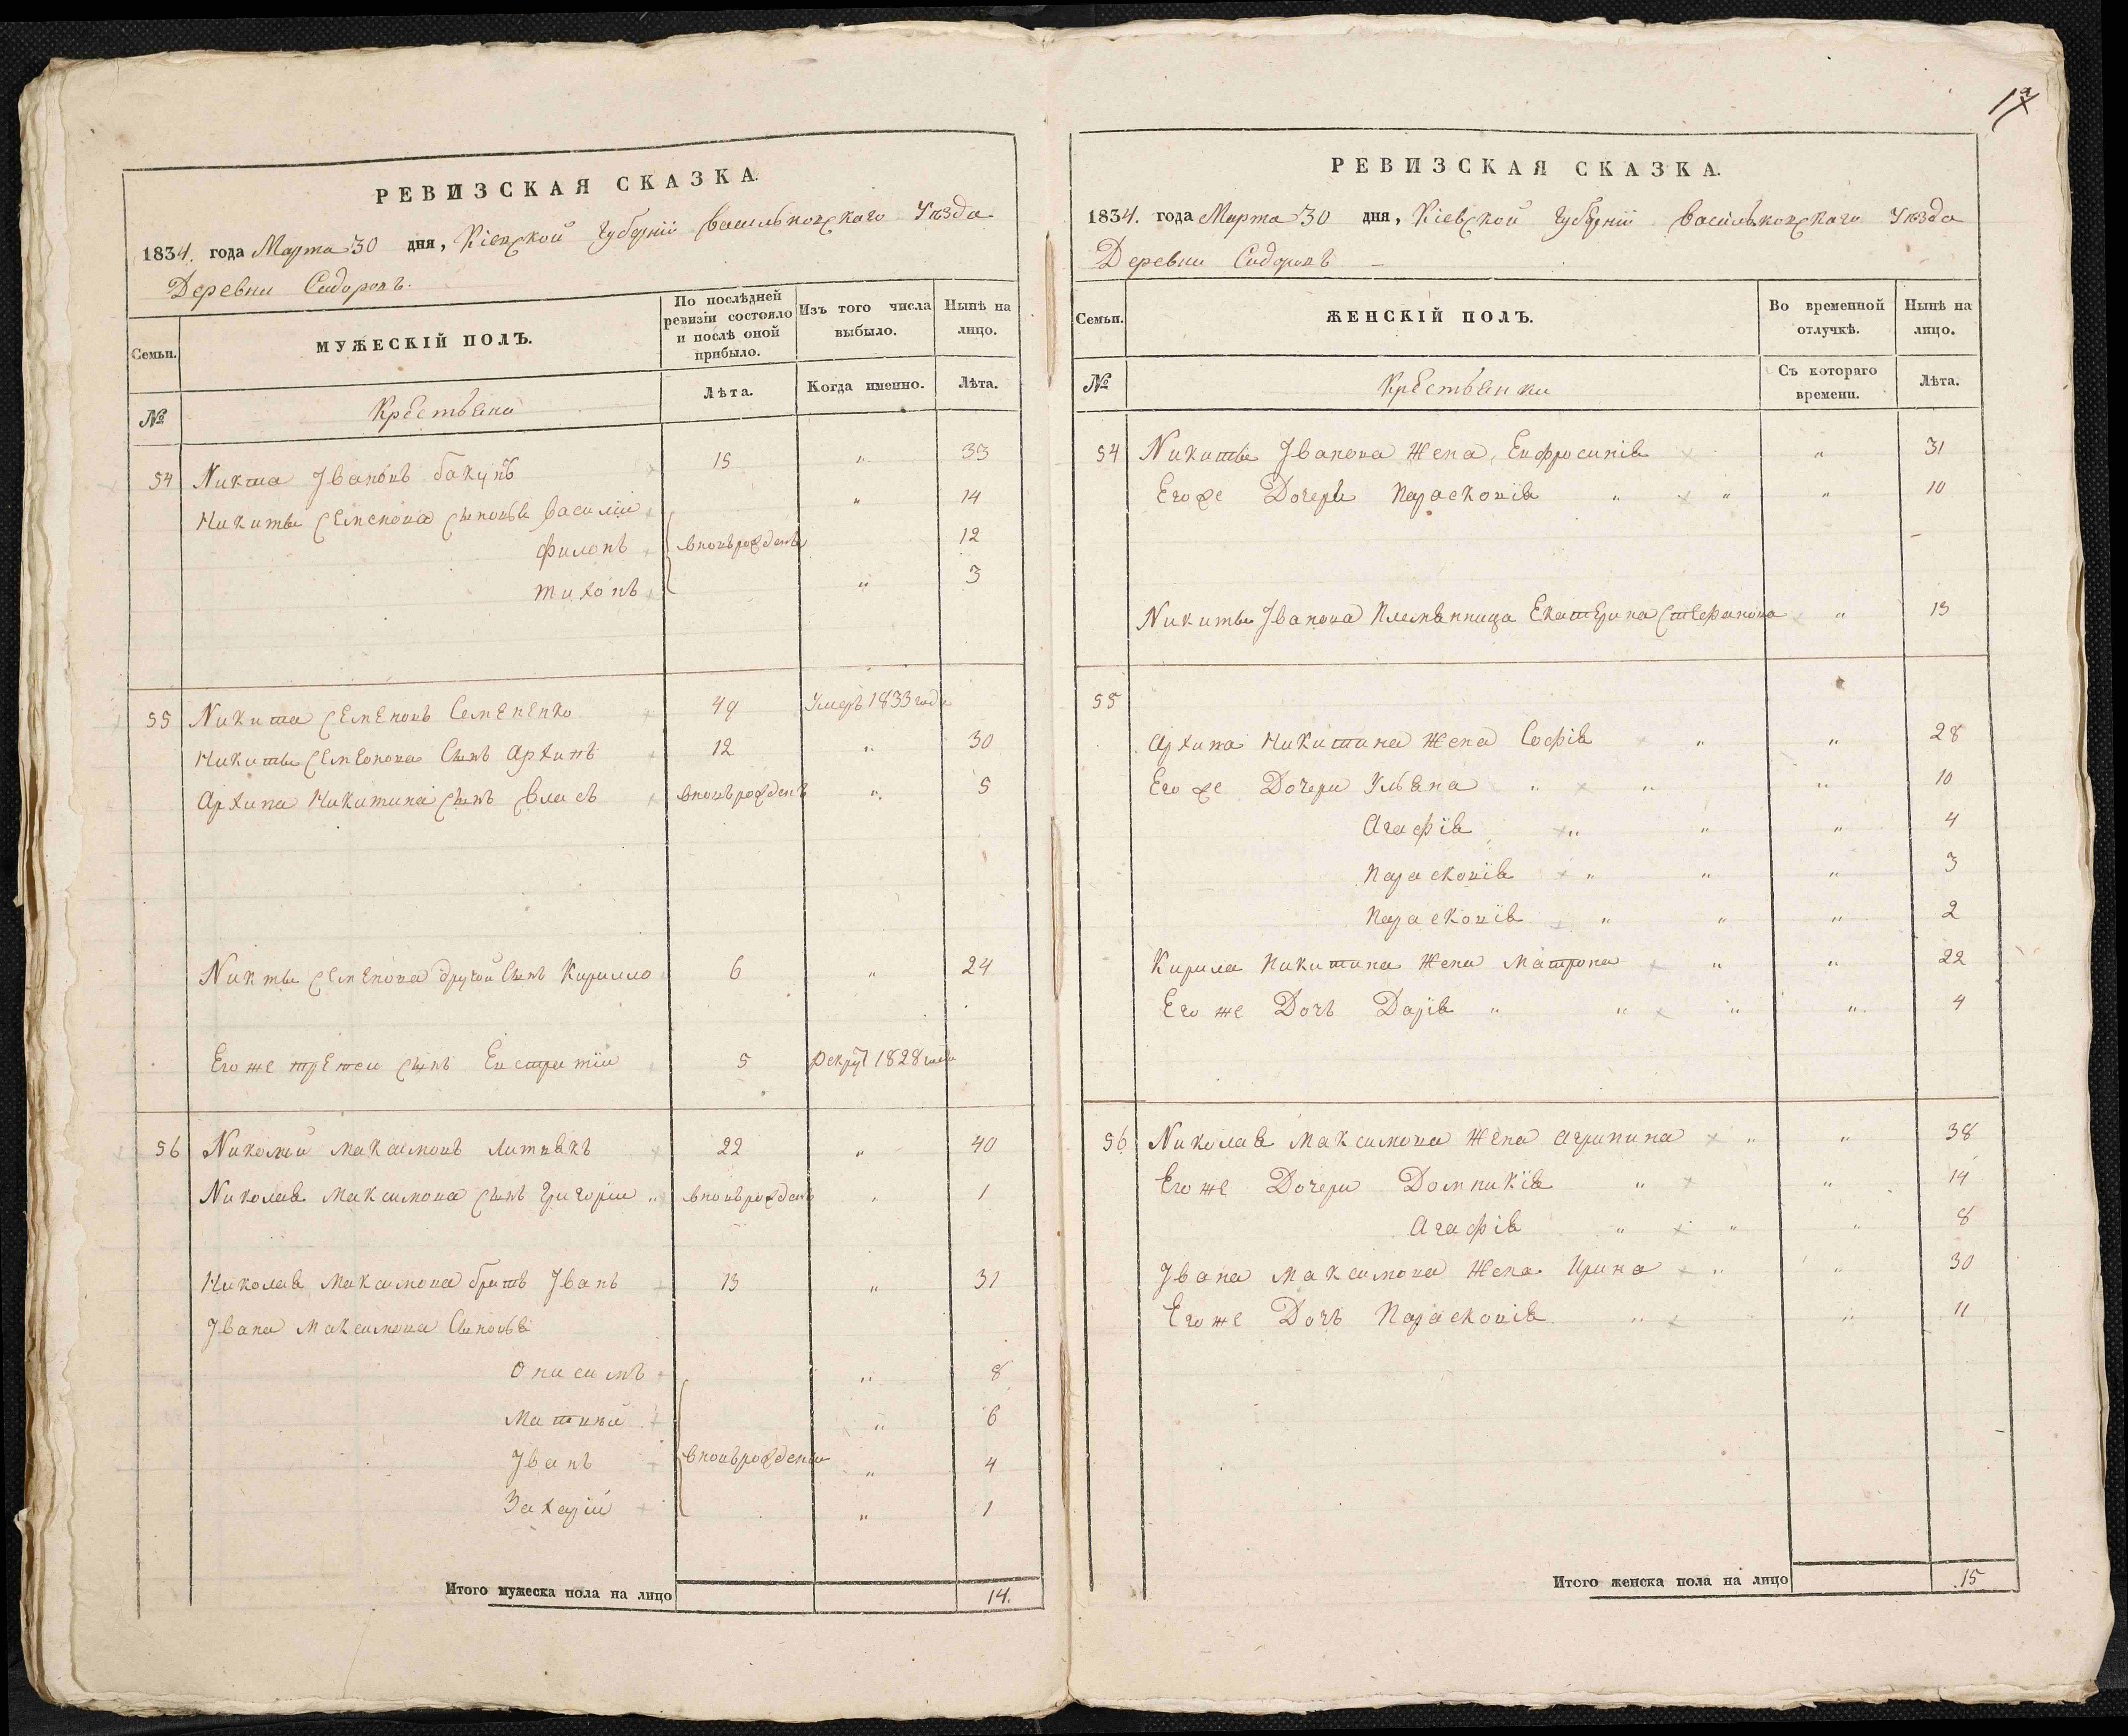 17
РЕВИЗСКАЯ СКАЗКА.
1834. года Марта 30 дня, Кіевской Губерніи Васильковскаго Уѣзда
Деревни Сидоровъ.
Семьи.
МУЖЕСКІЙ ПОЛЪ.
По послѣдней ревизіи состояло и послѣ оной прибыло.
Изъ того числа выбыло.
Нынѣ на лицо.
№
Крестьяни
Лѣта.
Когда именно.
Лѣта.
54 Никита Івановъ Бакунъ 15 „ 33
Никиты Семенова сыновья Василій „ 14
Филонъ вновьрожденъ 12
Тихонъ „ 3
55 Никита Семеновъ Семененко 49 Умеръ 1833 года
Никиты Семенова Сынъ Архипъ 12 „ 30
Архипа Никитина сынъ Власъ вновьрожденъ „ 5
Никты Семенова другой Сынъ Кирилло 6 „ 24
Егоже третеи сынъ Евстратіи 5 Рекрут 1828 года
56 Николай Максимовъ Литвакъ 22 „ 40
Николая Максимова сынъ Григоріи „ вновьрожденъ „ 1
Николая Максимова братъ Іванъ 13 „ 31
Івана Максимова Сыновья
Онисимъ „ 8
Матвѣй „ 6
Іванъ вновьрождены „ 4
Захарій „ 1
Итого мужеска пола на лицо 14.
РЕВИЗСКАЯ СКАЗКА.
1834. года Марта 30 дня, Кіевской Губерніи Васильковскаго Уѣзда
Деревни Сидоровъ –
Семьи.
ЖЕНСКІЙ ПОЛЪ.
Во временной отлучкѣ.
Нынѣ на лицо.
№
Крестьянки
Съ котораго времени.
Лѣта.
54 Никиты Іванова Жена Евфросинія „ 31
Егоже Дочери Парасковія „ „ „ 10
Никиты Іванова Племянница Екатерина Стефанова „ 13
55
Архипа Никитина Жена Софія „ „ 28
Его же Дочери Ульяна „ „ „ 10
Агафія „ „ „ 4
Парасковія „ „ „ 3
Парасковія „ „ „ 2
Кирила Никитина Жена Матрона „ „ 22
Его же Дочь Дарія „ „ „ „ 4
56 Николая Максимова Жена Агрипина „ „ 38
Егоже Дочери Домникія „ „ 14
Агафія „ „ „ 8
Івана Максимова Жена Ирина „ „ 30
Егоже Дочь Парасковія „ „ 11
Итого женска пола на лицо 15